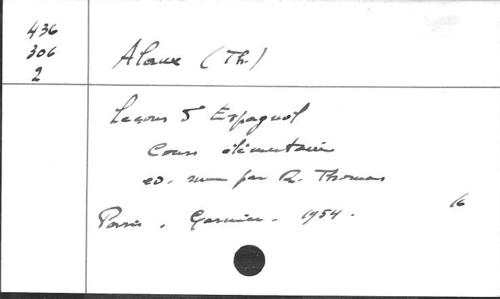 436
306
2
Alaux (Th.)
Leçons d'Espagnol
Cours élémentaire
éd. revue par R. Thomas
16
Paris, Garnier. 1954.